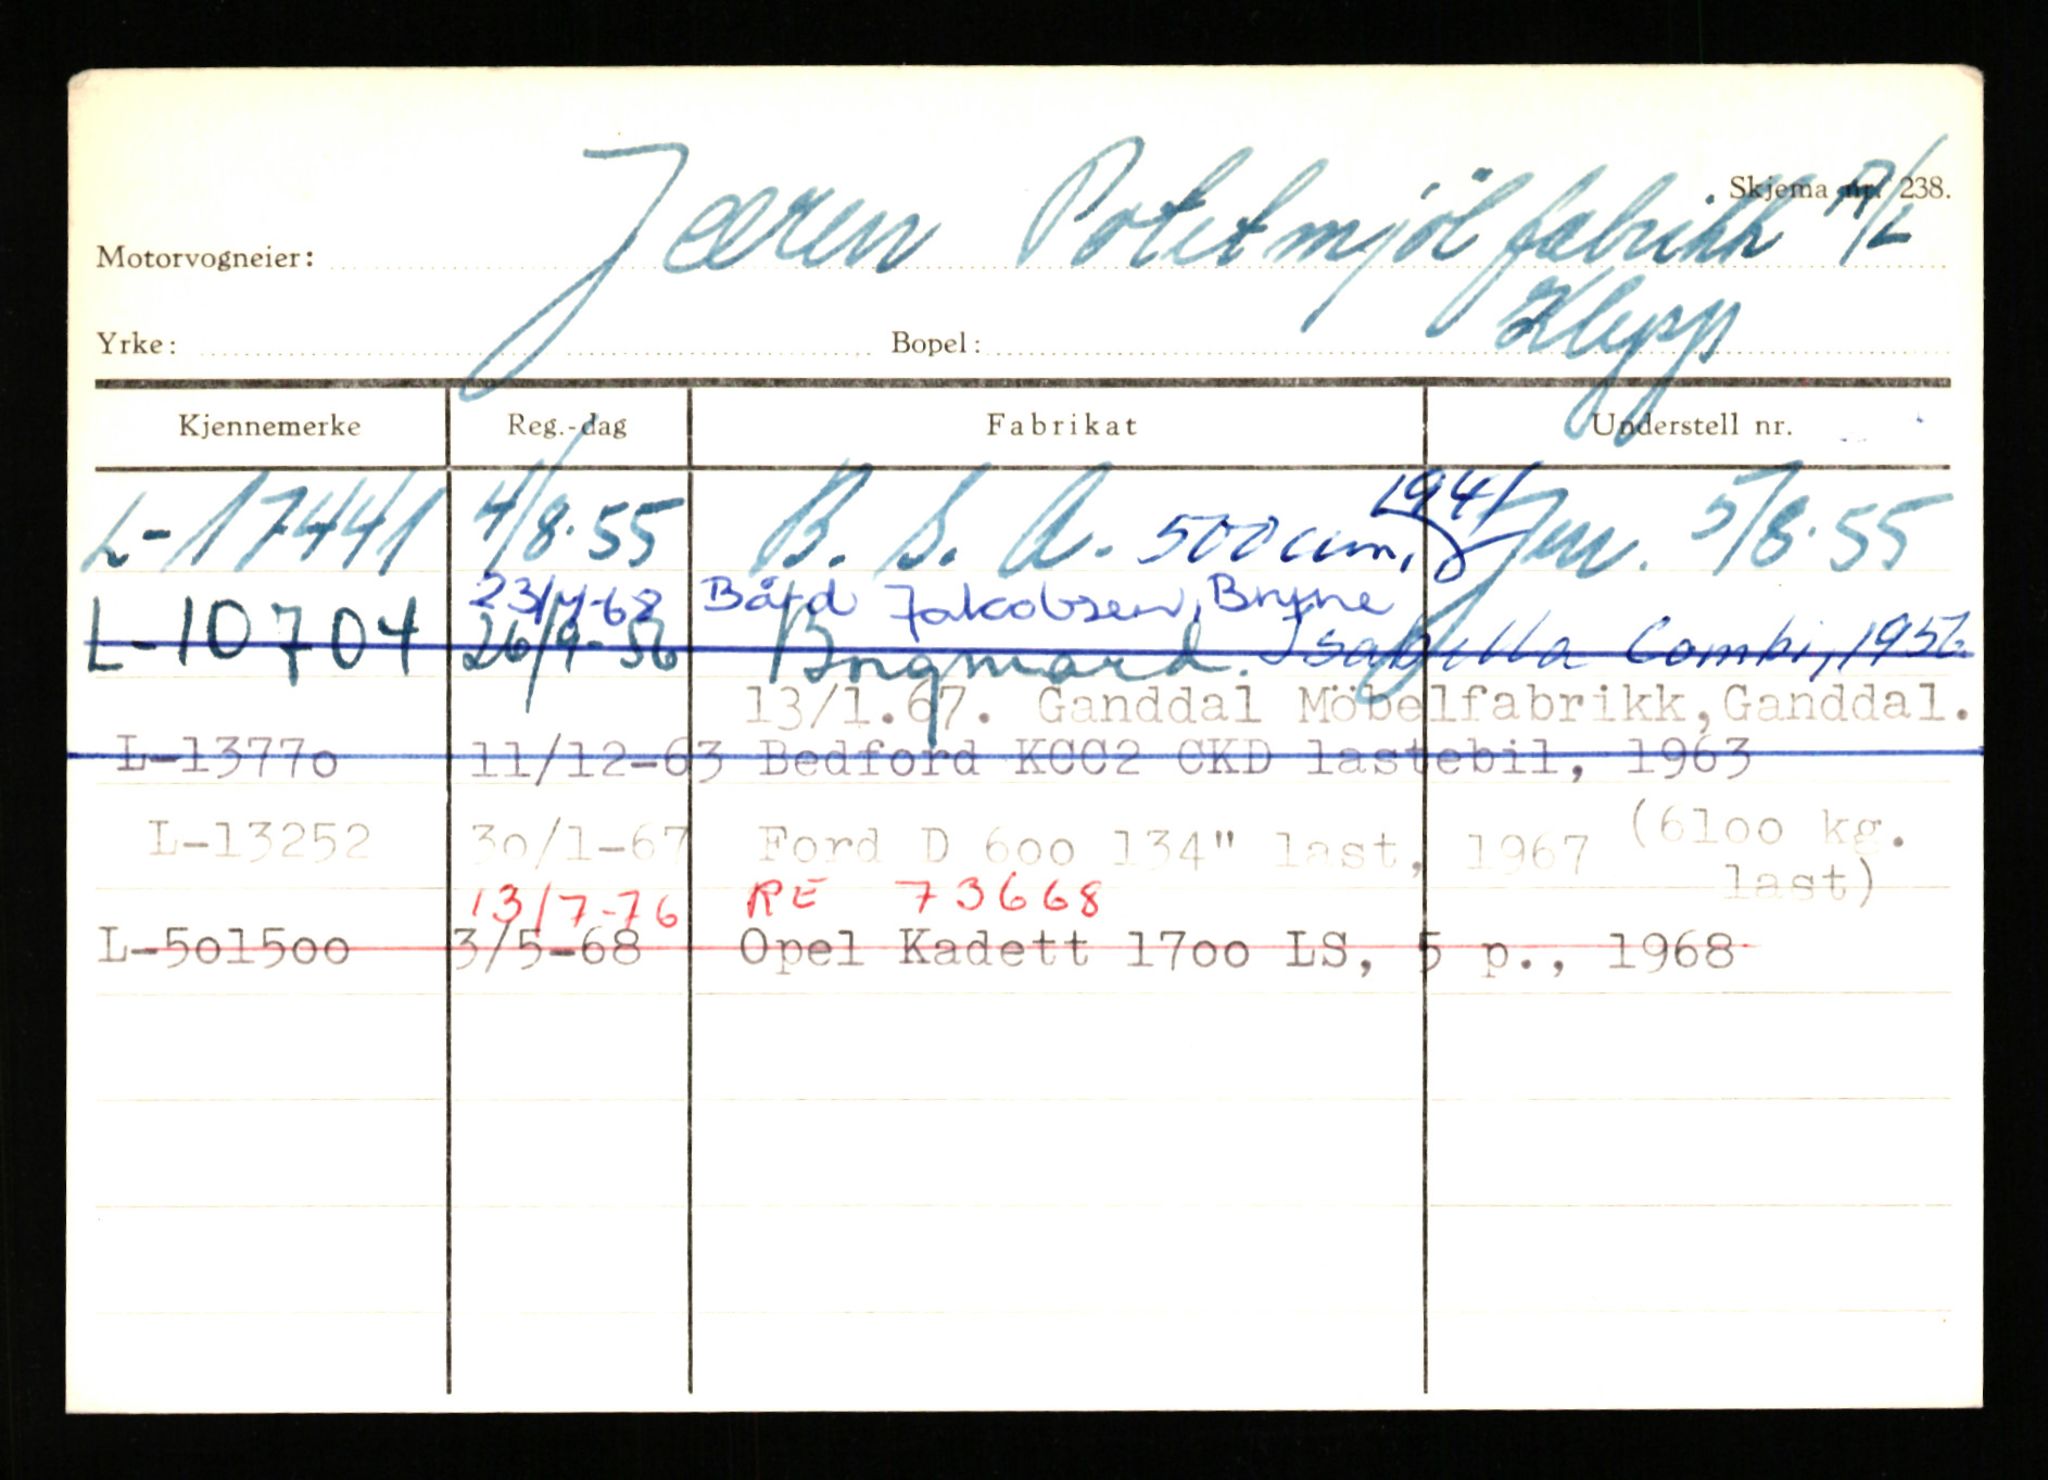 Skjema nr. 238.
Motorvogneier: Jæren Potetmjölfabrikk A/L
Yrke: Bopel: Klepp
Kjennemerke Reg.-dag Fabrikat Understell nr.
L-17441 4/8-55 B. S. A. 500 ccm, 1941 5/8-55
23/4-68 Bård Jakobsen, Bryne
L-10704 26/9-56 Borgward. Isabella Combi, 1956.
13/1.67. Ganddal Möbelfabrikk, Ganddal.
L-13770 11/12-63 Bedford KCC2 CKD lastebil, 1963
L-13252 30/1-67 Ford D 600 134" last, 1967 (6100 kg. last)
13/7-76 RE 73668
L-501500 3/5-68 Opel Kadett 1700 LS, 5 p., 1968